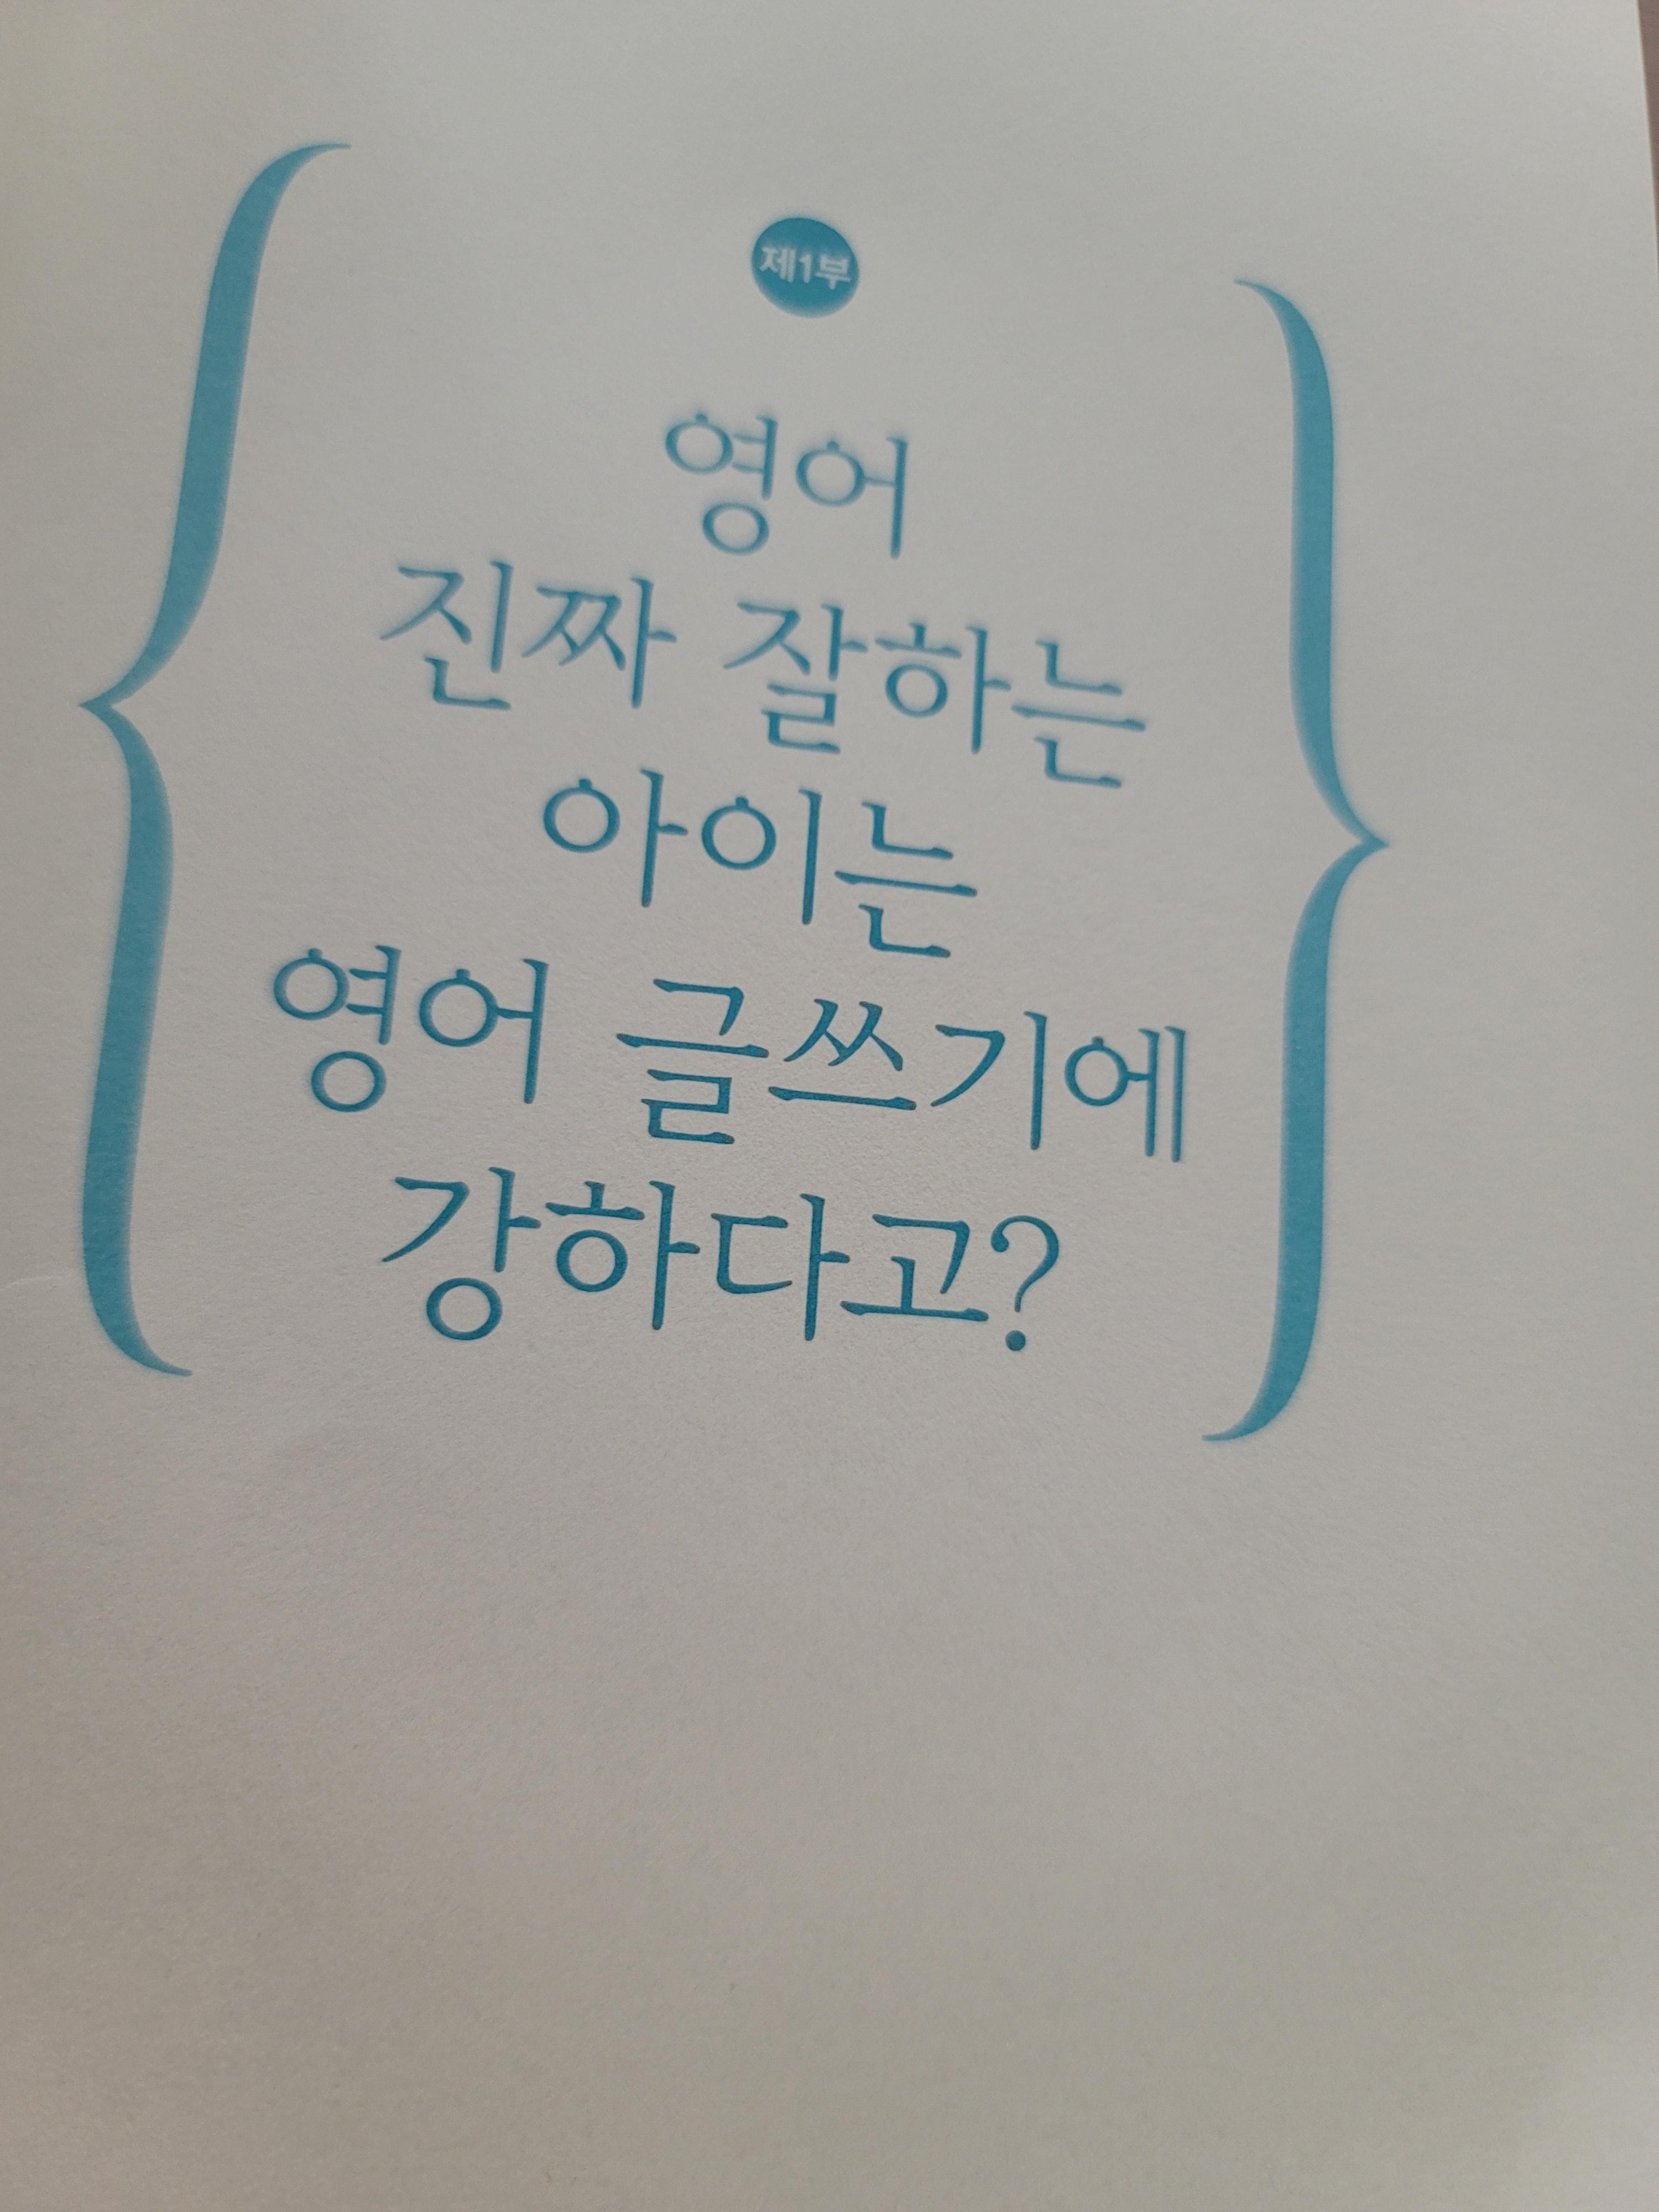 제1부
영어
진짜 잘하는
아이는
영어 글쓰기에
강하다고?